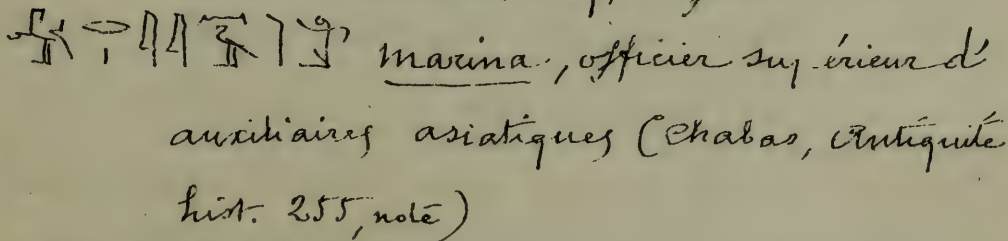 marina, officier supérieur d'
auxiliaires asiatiques (Chabas, Antiquité
hist. 255, note)